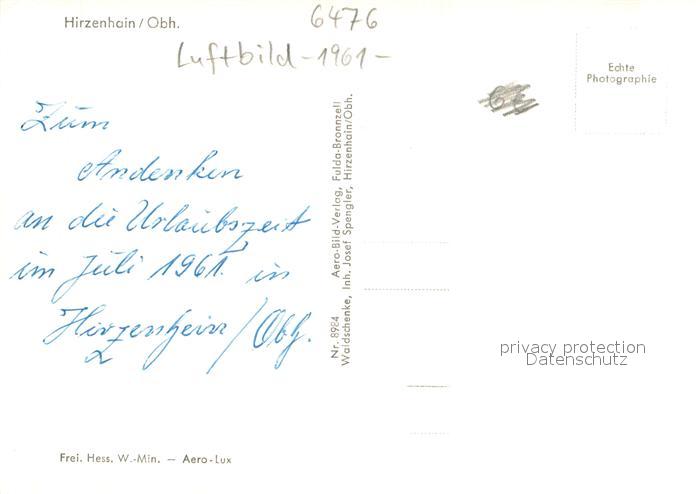 Hirzenhain / Obh.
6476
Luftbild - 1961 -
Echte
Photographie
6€
Zum
Andenken
an die Urlaubszeit
im Juli 1961. in
Hirzenhein / Obh.
Nr. 8984 Aero-Bild-Verlag, Fulda-Bronnzell
Waldschenke, Inh. Josef Spengler, Hirzenhain/Obh.
privacy protection
Datenschutz
Frei. Hess. W.-Min. — Aero-Lux